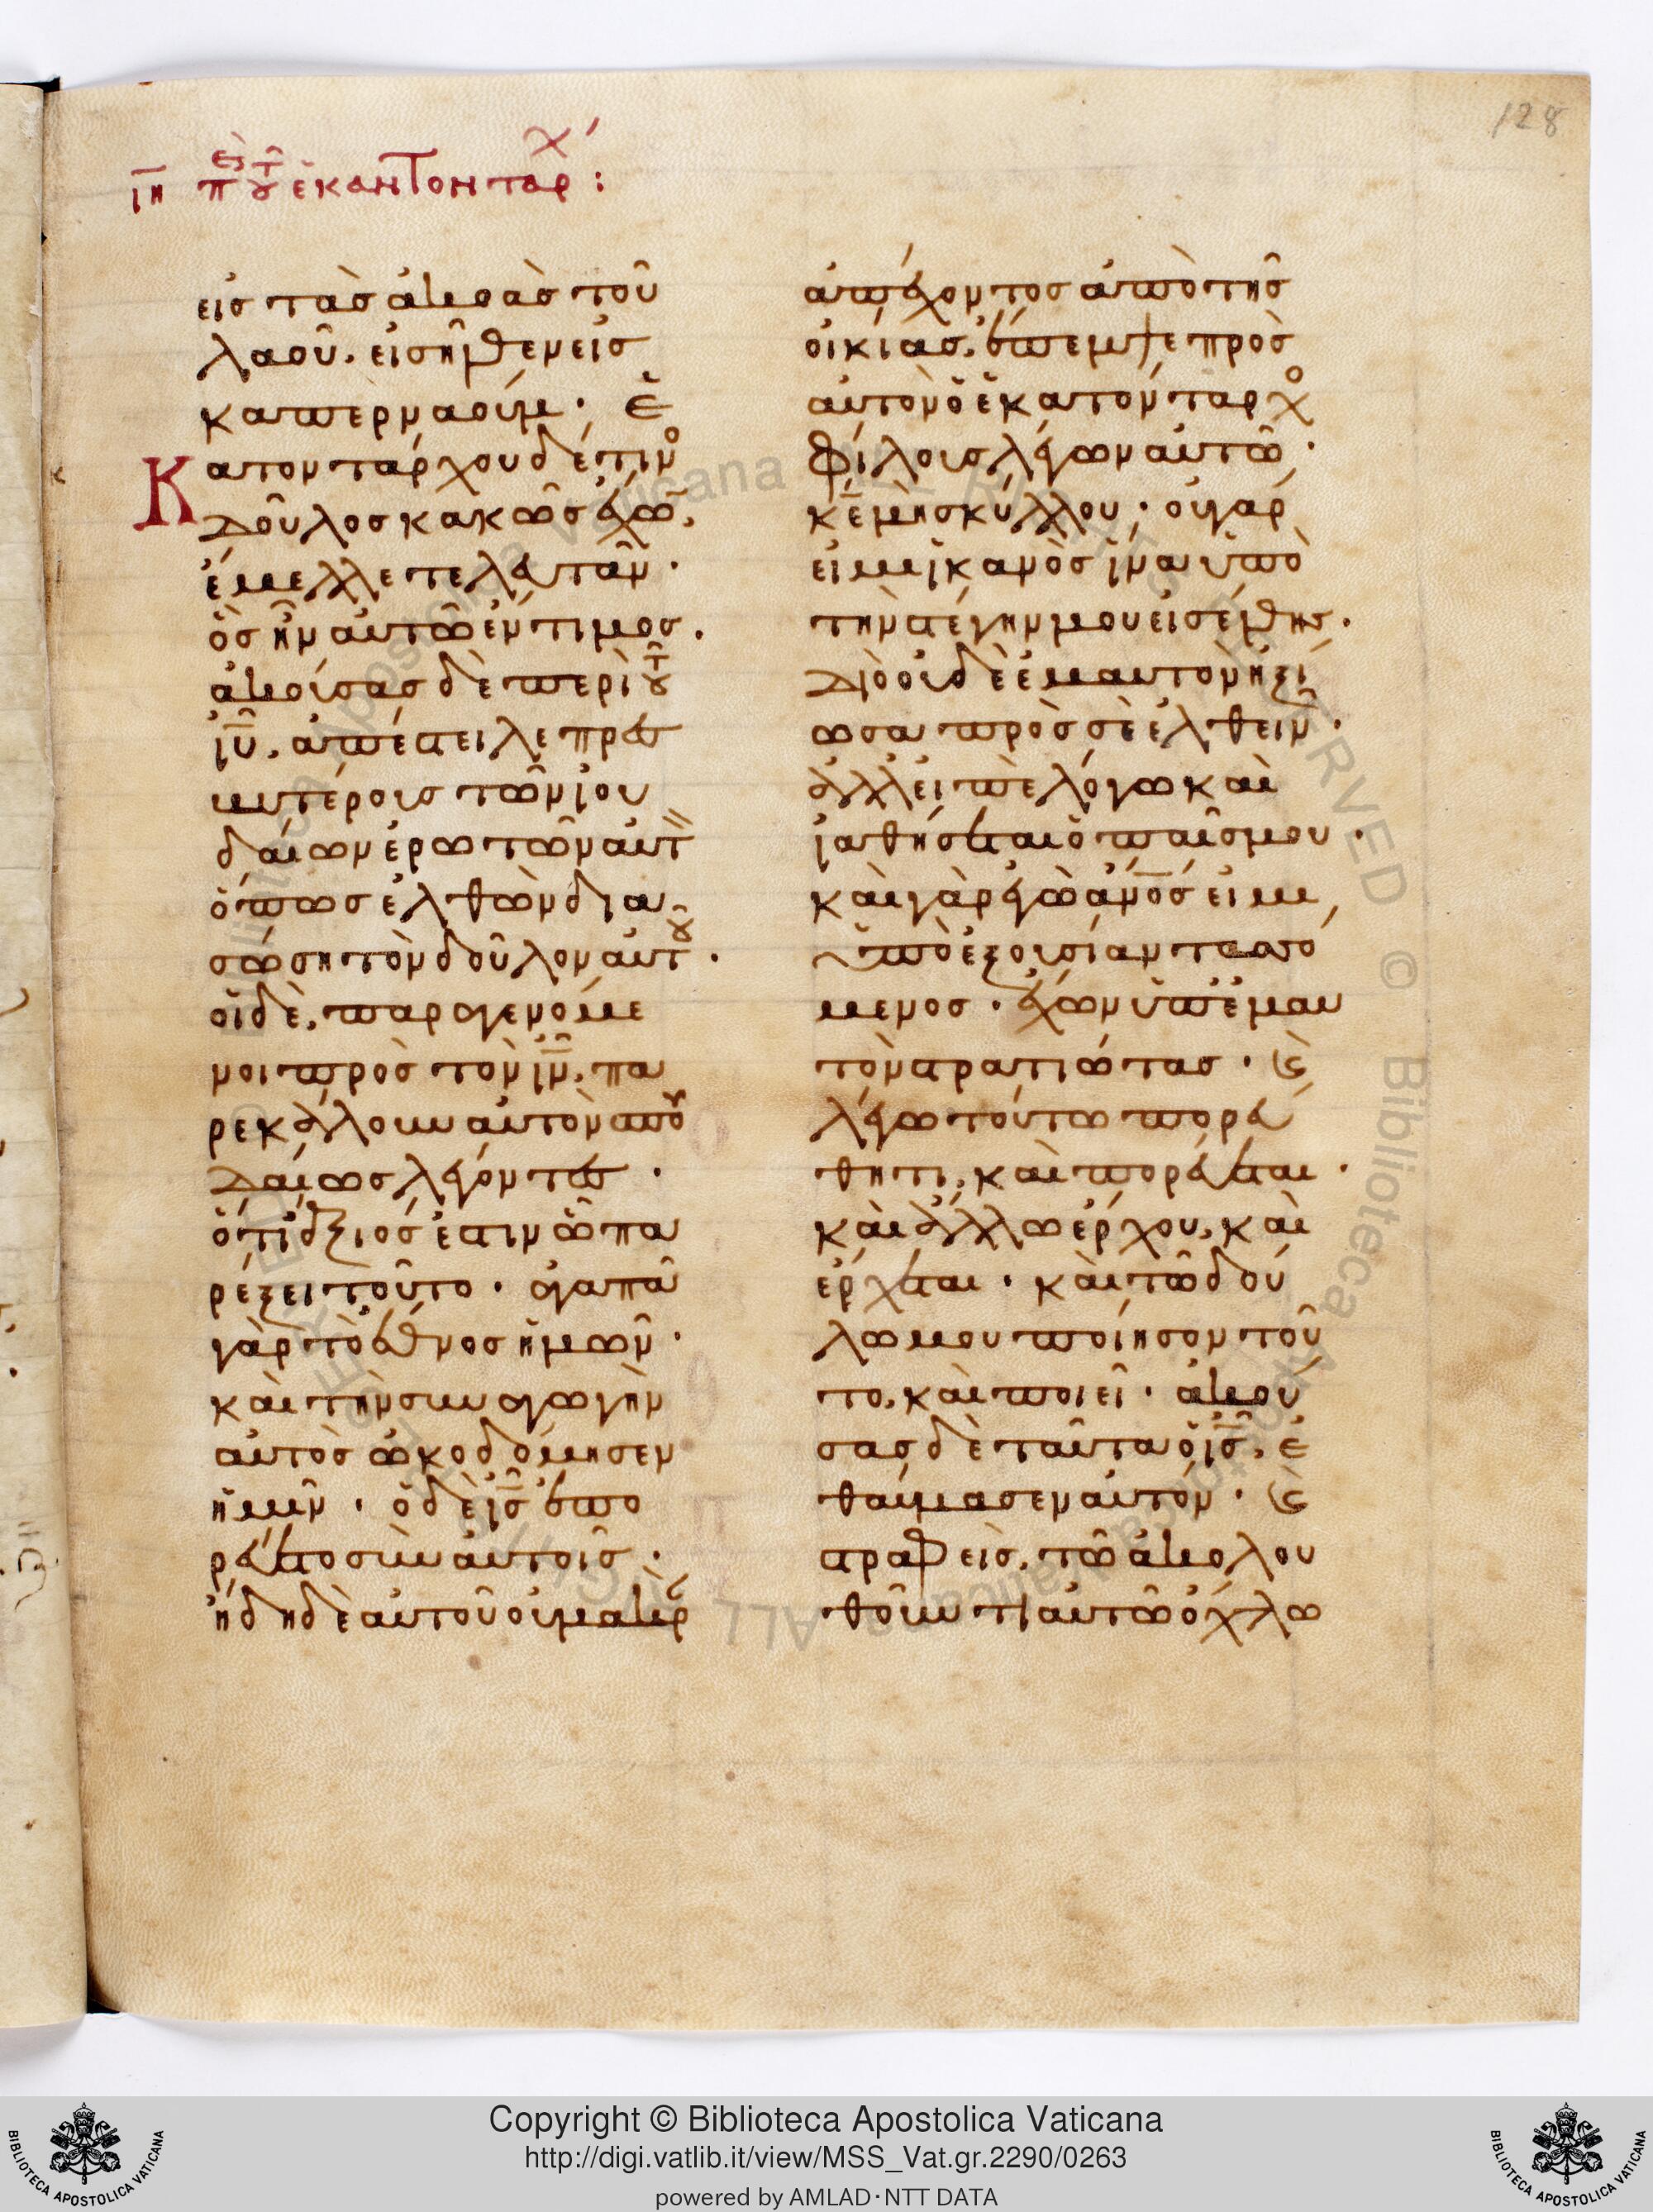 128
ιη περὶ τοῦ ἑκαντονταρχ:
εἰς τὰς ἀκοὰς τοῦ
λαοῦ. εἰσῆλθεν εἰς
καπερναούμ· ἑ
Κατοντάρχου δέ τινος
δοῦλος κακῶς ἔχων,
ἔμελλε τελευτᾶν·
ὃς ἦν αὐτῶ ἔντιμος.
ἀκούσας δὲ περὶ τοῦ
ιυ, ἀπέστειλε πρεσ
βυτέρους τῶν ἰου
δαίων ἐρωτῶν αὐτὸν
ὅπως ἐλθὼν δια
σώση τὸν δοῦλον αὐτοῦ.
οἱ δὲ, παραγενόμε
νοι πρὸς τὸν ιν, πα
ρεκάλουν αὐτὸν σπου
δαίως λέγοντες·
ὅτι ἄξιός ἐστιν ὧ πα
ρέξει τοῦτο· ἀγαπᾶ
γὰρ τὸ ἔθνος ἡμῶν·
καὶ τὴν συναγωγὴν
αὐτὸς ὠκοδόμησεν
ἡμῖν· ὁ δὲ ις ἐπο
ρεύετο σὺν αὐτοῖς·
ἤδη δὲ αὐτοῦ οὐ μακρὰν
ἀπέχοντος ἀπὸ τῆς
οἰκίας, ἔπεμψε πρὸς
αὐτὸν ὁ ἑκατόνταρχο
φίλους λέγων αὐτῶ·
κε μὴ σκύλλου· οὐ γάρ
εἰμι ἱκανὸς ἵνα ὑπὸ
τὴν στέγην μου εἰσέλθης·
διὸ οὐδὲ ἐμαυτὸν ἠξί
ωσα πρὸς σὲ ἐλθεῖν·
ἀλλ εἰπὲ λόγω καὶ
ἰαθήσεται ὁ παῖς μου·
καὶ γὰρ ἐγὼ ἀνός εἰμι
ὑπὸ ἐξουσίαν τασσό
μενος· ἔχων ὑπ ἐμαυ
τὸν στρατιώτας· καὶ
λέγω τούτω πορεύ
θητι, καὶ πορεύεται·
καὶ ἄλλω ἔρχου, καὶ
ἔρχεται· καὶ τῶ δού
λω μου ποίησον τοῦ
το, καὶ ποιεῖ· ἀκού
σας δὲ ταῦτα ὁ ις, ἐ
θαύμασεν αὐτόν· καὶ
στραφεὶς, τῶ ἀκολου
θοῦντι αὐτῶ ὄχλω
Copyright © Biblioteca Apostolica Vaticana
http://digi.vatlib.it/view/MSS_Vat.gr.2290/0263
powered by AMLAD·NTT DATA